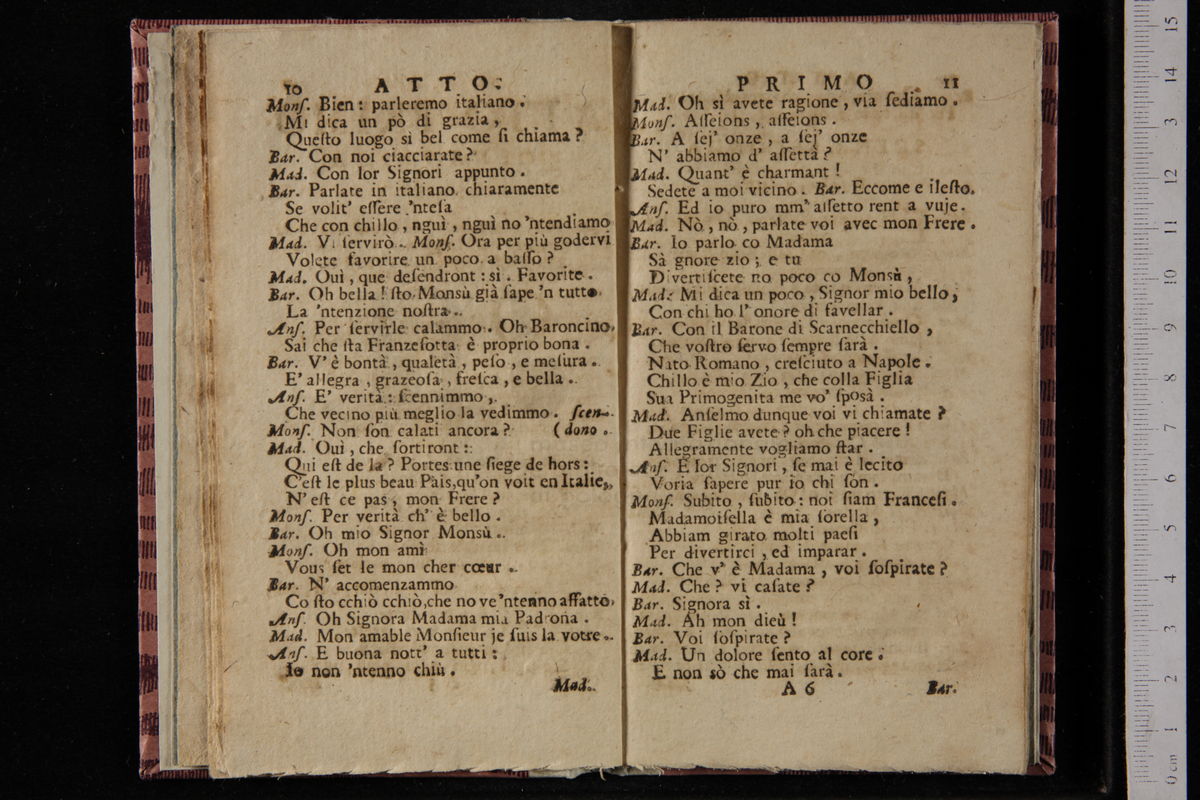 10 ATTO.
Monſ. Bien: parleremo italiano.
Mi dica un pò di grazia,
Queſto luogo si bel come ſi chiama?
Bar. Con noi ciacciarate?
Mad. Con lor Signori appunto.
Bar. Parlate in italiano chiaramente
Se volit' eſſere 'nteſa
Che con chillo, nguì, nguì no 'ntendiamo
Mad. Vi ſervirò. Monſ. Ora per più godervi
Volete favorire un poco a baſſo?
Mad. Ouì, que deſendront: sì. Favorite.
Bar. Oh bella! ſto Monsù già ſape 'n tutto
La 'ntenzione noſtra.
Anſ. Per ſervirle calammo. Oh Baroncino,
Sai che ſta Franzeſotta è proprio bona.
Bar. V' è bontà, qualetà, peſo, e meſura.
E' allegra, grazeoſa, freſca, e bella.
Anſ. E' verità: ſcennimmo,
Che vecino più meglio la vedimmo. ſcen-
Monſ. Non ſon calati ancora? (dono.
Mad. Ouì, che ſortiront:
Qui eſt de la? Portes une ſiege de hors:
C'eſt le plus beau Païs, qu'on voit en Italie,
N' eſt ce pas, mon Frere?
Monſ. Per verità ch' è bello.
Bar. Oh mio Signor Monsù.
Monſ. Oh mon amì
Vous ſet le mon cher cœur.
Bar. N' accomenzammo
Co ſto cchiò cchiò, che no ve 'ntenno affatto,
Anſ. Oh Signora Madama mia Padrona.
Mad. Mon amable Monſieur je ſuis la votre.
Anſ. E buona nott' a tutti:
Io non 'ntenno chiù.
Mad.
PRIMO. 11
Mad. Oh sì avete ragione, via ſediamo.
Monſ. Aſſeions, aſſeions.
Bar. A ſej' onze, a ſej' onze
N' abbiamo d' aſſettà?
Mad. Quant' è charmant!
Sedete a moi vicino. Bar. Eccome e ileſto.
Anſ. Ed io puro mm' aſſetto rent a vuje.
Mad. Nò, nò, parlate voi avec mon Frere.
Bar. Io parlo co Madama
Sà gnore zio; e tu
Divertiſcete no poco co Monsù,
Mad. Mi dica un poco, Signor mio bello,
Con chi ho l' onore di favellar.
Bar. Con il Barone di Scarnecchiello,
Che voſtro ſervo ſempre ſarà.
Nato Romano, creſciuto a Napole.
Chillo è mio Zio, che colla Figlia
Sua Primogenita me vo' ſposà.
Mad. Anſelmo dunque voi vi chiamate?
Due Figlie avete? oh che piacere!
Allegramente vogliamo ſtar.
Anſ. E lor Signori, ſe mai è lecito
Voria ſapere pur io chi ſon.
Monſ. Subito, ſubito: noi ſiam Franceſi.
Madamoiſella è mia ſorella,
Abbiam girato molti paeſi
Per divertirci, ed imparar.
Bar. Che v' è Madama, voi ſoſpirate?
Mad. Che? vi caſate?
Bar. Signora sì.
Mad. Ah mon dieù!
Bar. Voi ſoſpirate?
Mad. Un dolore ſento al core.
E non sò che mai ſarà.
A 6 Bar.
0 cm 1 2 3 4 5 6 7 8 9 10 11 12 3 14 15